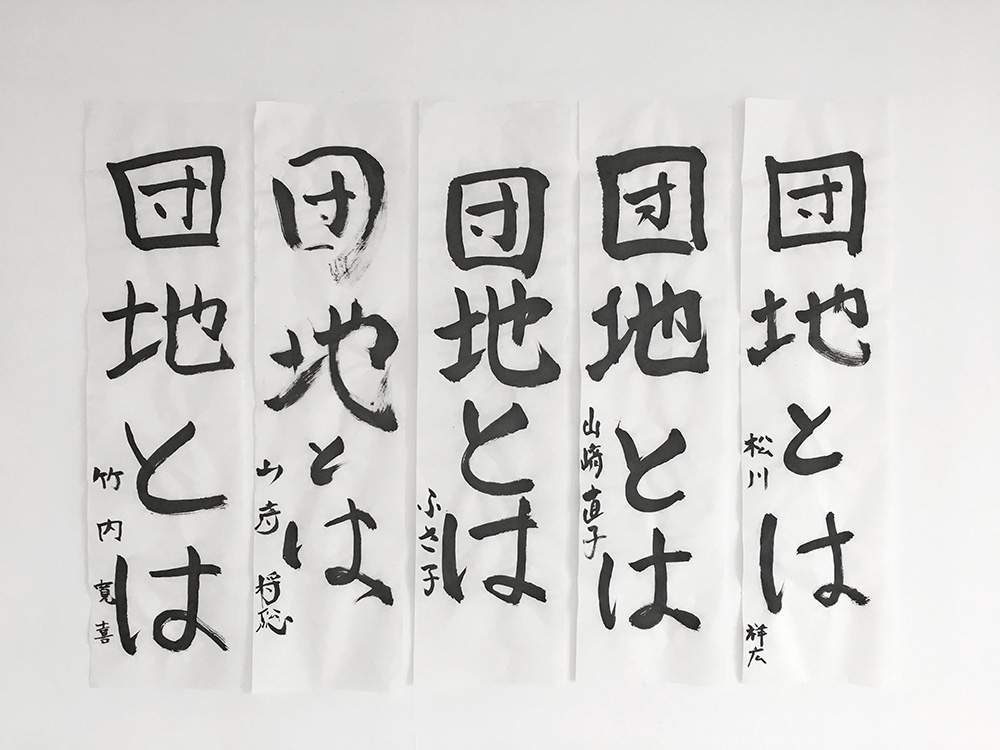 団地とは
松川 祥広
団地とは
山﨑直子
団地とは
ふさ子
団地とは
将聡
団地とは
竹内 寛喜